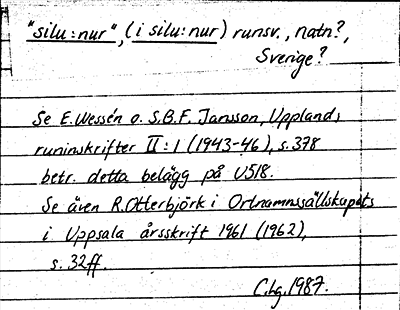 "silu:nur", (i silu:nur) runsv., natn?,
Sverige?
Se E.Wessén o. S.B.F. Jansson, Upplands
runinskrifter II:1 (1943-46), s.378
betr. detta belägg på U518.
Se även R.Otterbjörk i Ortnamnssällskapets
i Uppsala årsskrift 1961 (1962),
s.32ff.
C.hg.1987.